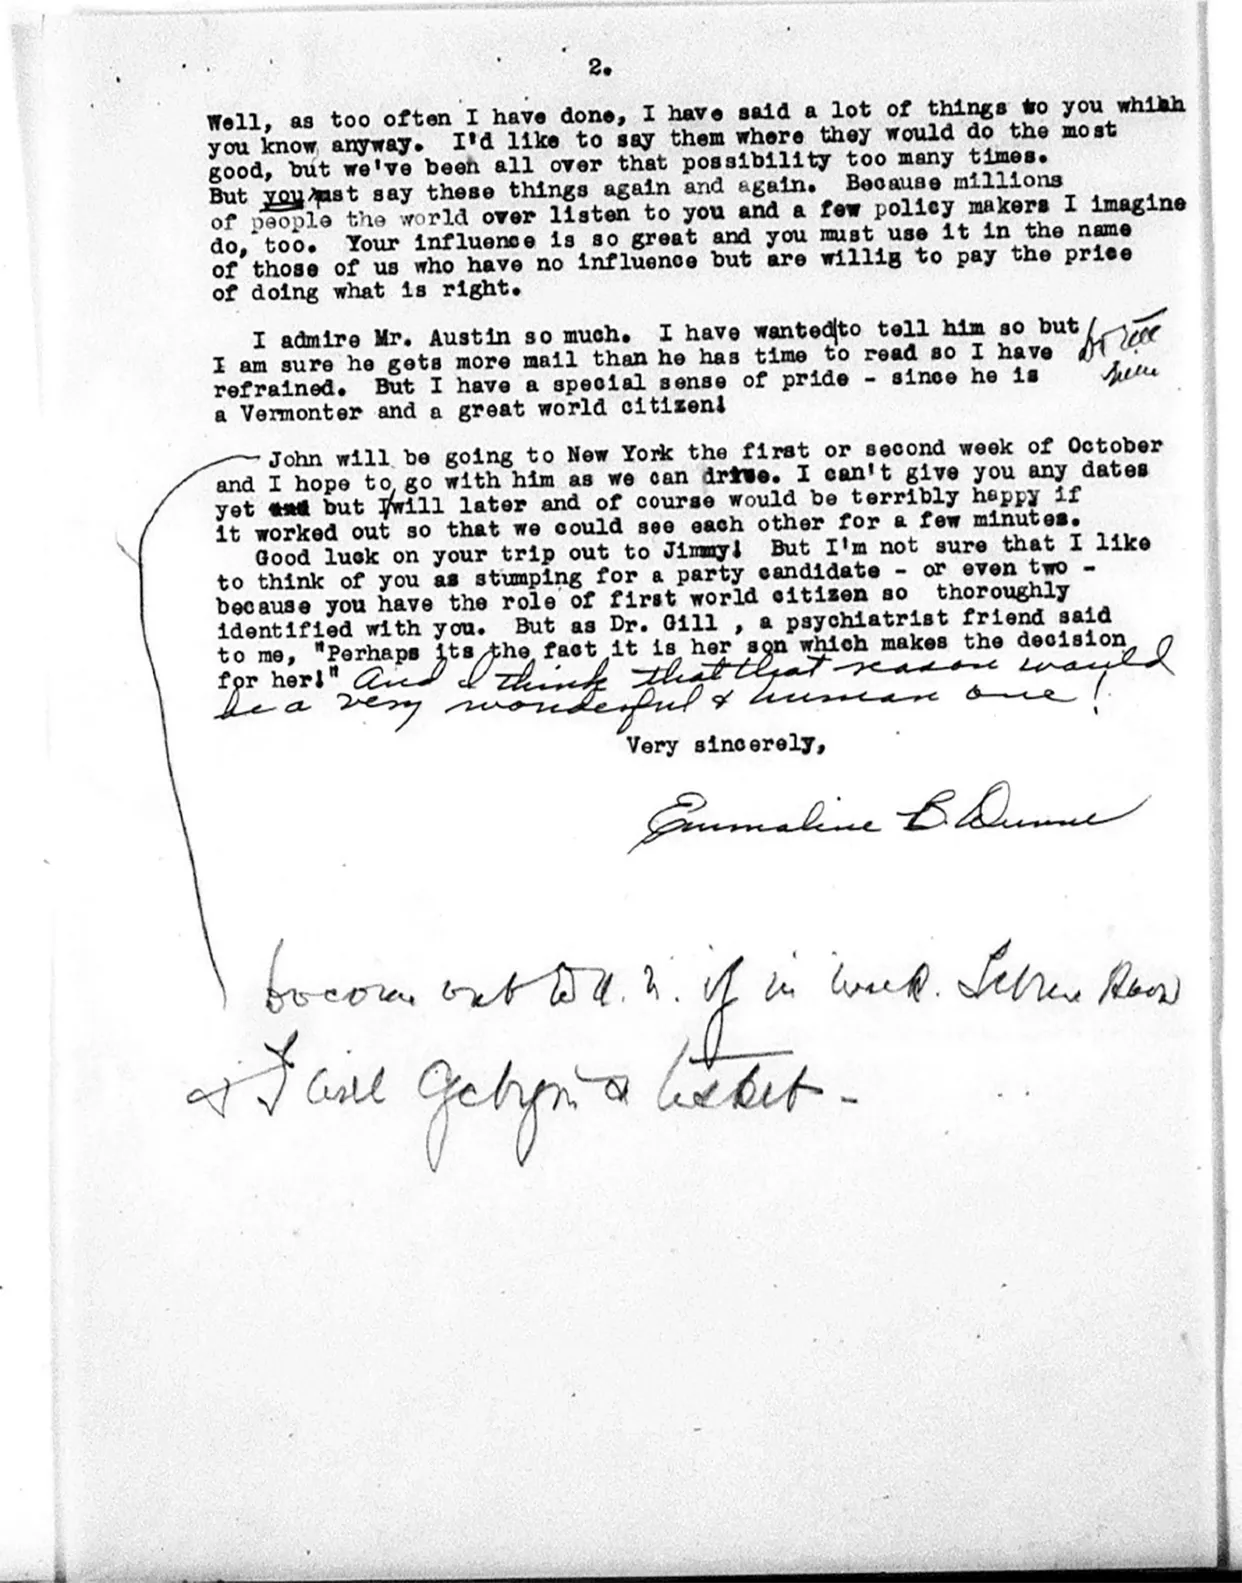 2.
Well, as too often I have done, I have said a lot of things to you whihh
you know anyway. I'd like to say them where they would do the most
good, but we've been all over that possibility too many times.
But you must say these things again and again. Because millions
of people the world over listen to you and a few policy makers I imagine
do, too. Your influence is so great and you must use it in the name
of those of us who have no influence but are willig to pay the price
of doing what is right.
I admire Mr. Austin so much. I have wanted to tell him so but
I am sure he gets more mail than he has time to read so I have
refrained. But I have a special sense of pride - since he is
a Vermonter and a great world citizen!
John will be going to New York the first or second week of October
and I hope to go with him as we can drive. I can't give you any dates
yet but I will later and of course would be terribly happy if
it worked out so that we could see each other for a few minutes.
Good luck on your trip out to Jimmy! But I'm not sure that I like
to think of you as stumping for a party candidate - or even two -
because you have the role of first world citizen so thoroughly
identified with you. But as Dr. Gill , a psychiatrist friend said
to me, "Perhaps its the fact it is her son which makes the decision
for her!" And I think that that reason would
be a very wonderful & human one!
Very sincerely,
Emmaline B. Dunne
U.N. if in
& I will